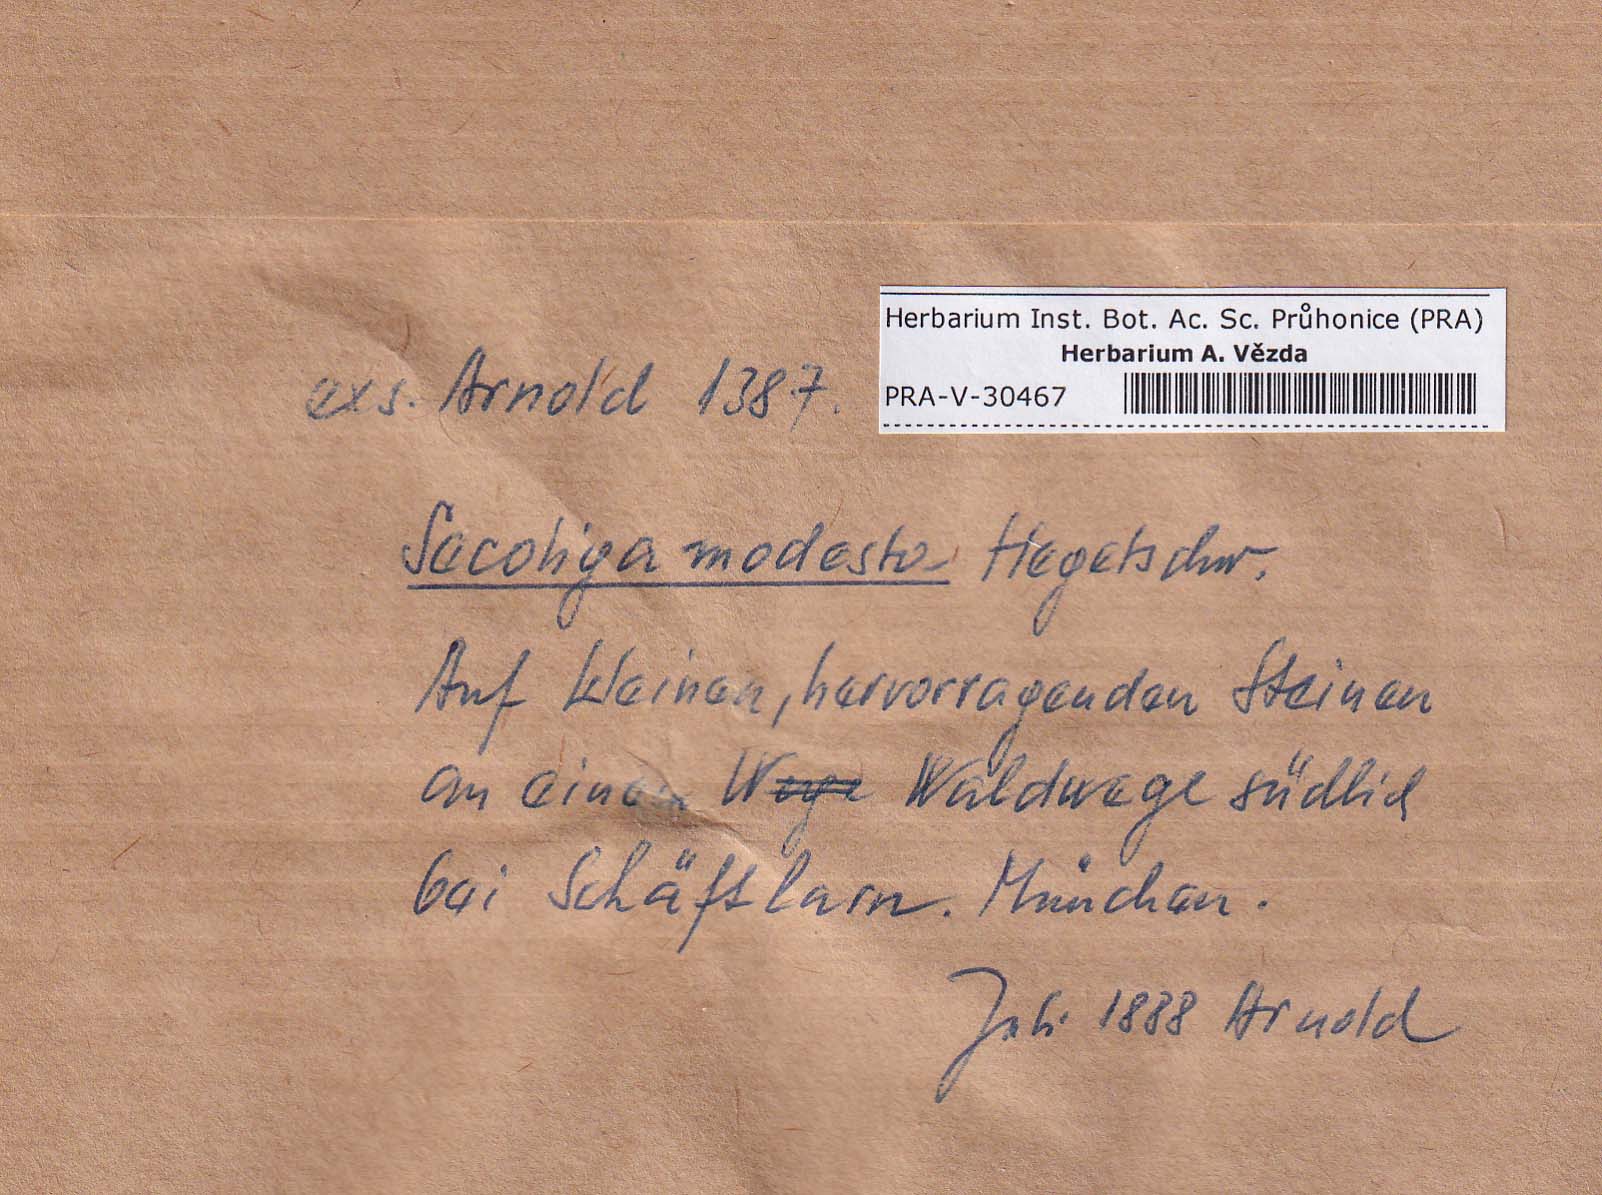 Herbarium Inst. Bot. Ac. Sc. Průhonice (PRA)
Herbarium A. Vězda
PRA-V-30467
exs. Arnold 1387.
Secoliga modesta Hegetschw.
Auf kleinen, hervorragenden Steinen
an einem Wege Waldwege südlich
bei Schäftlarn. München.
Juli 1888 Arnold